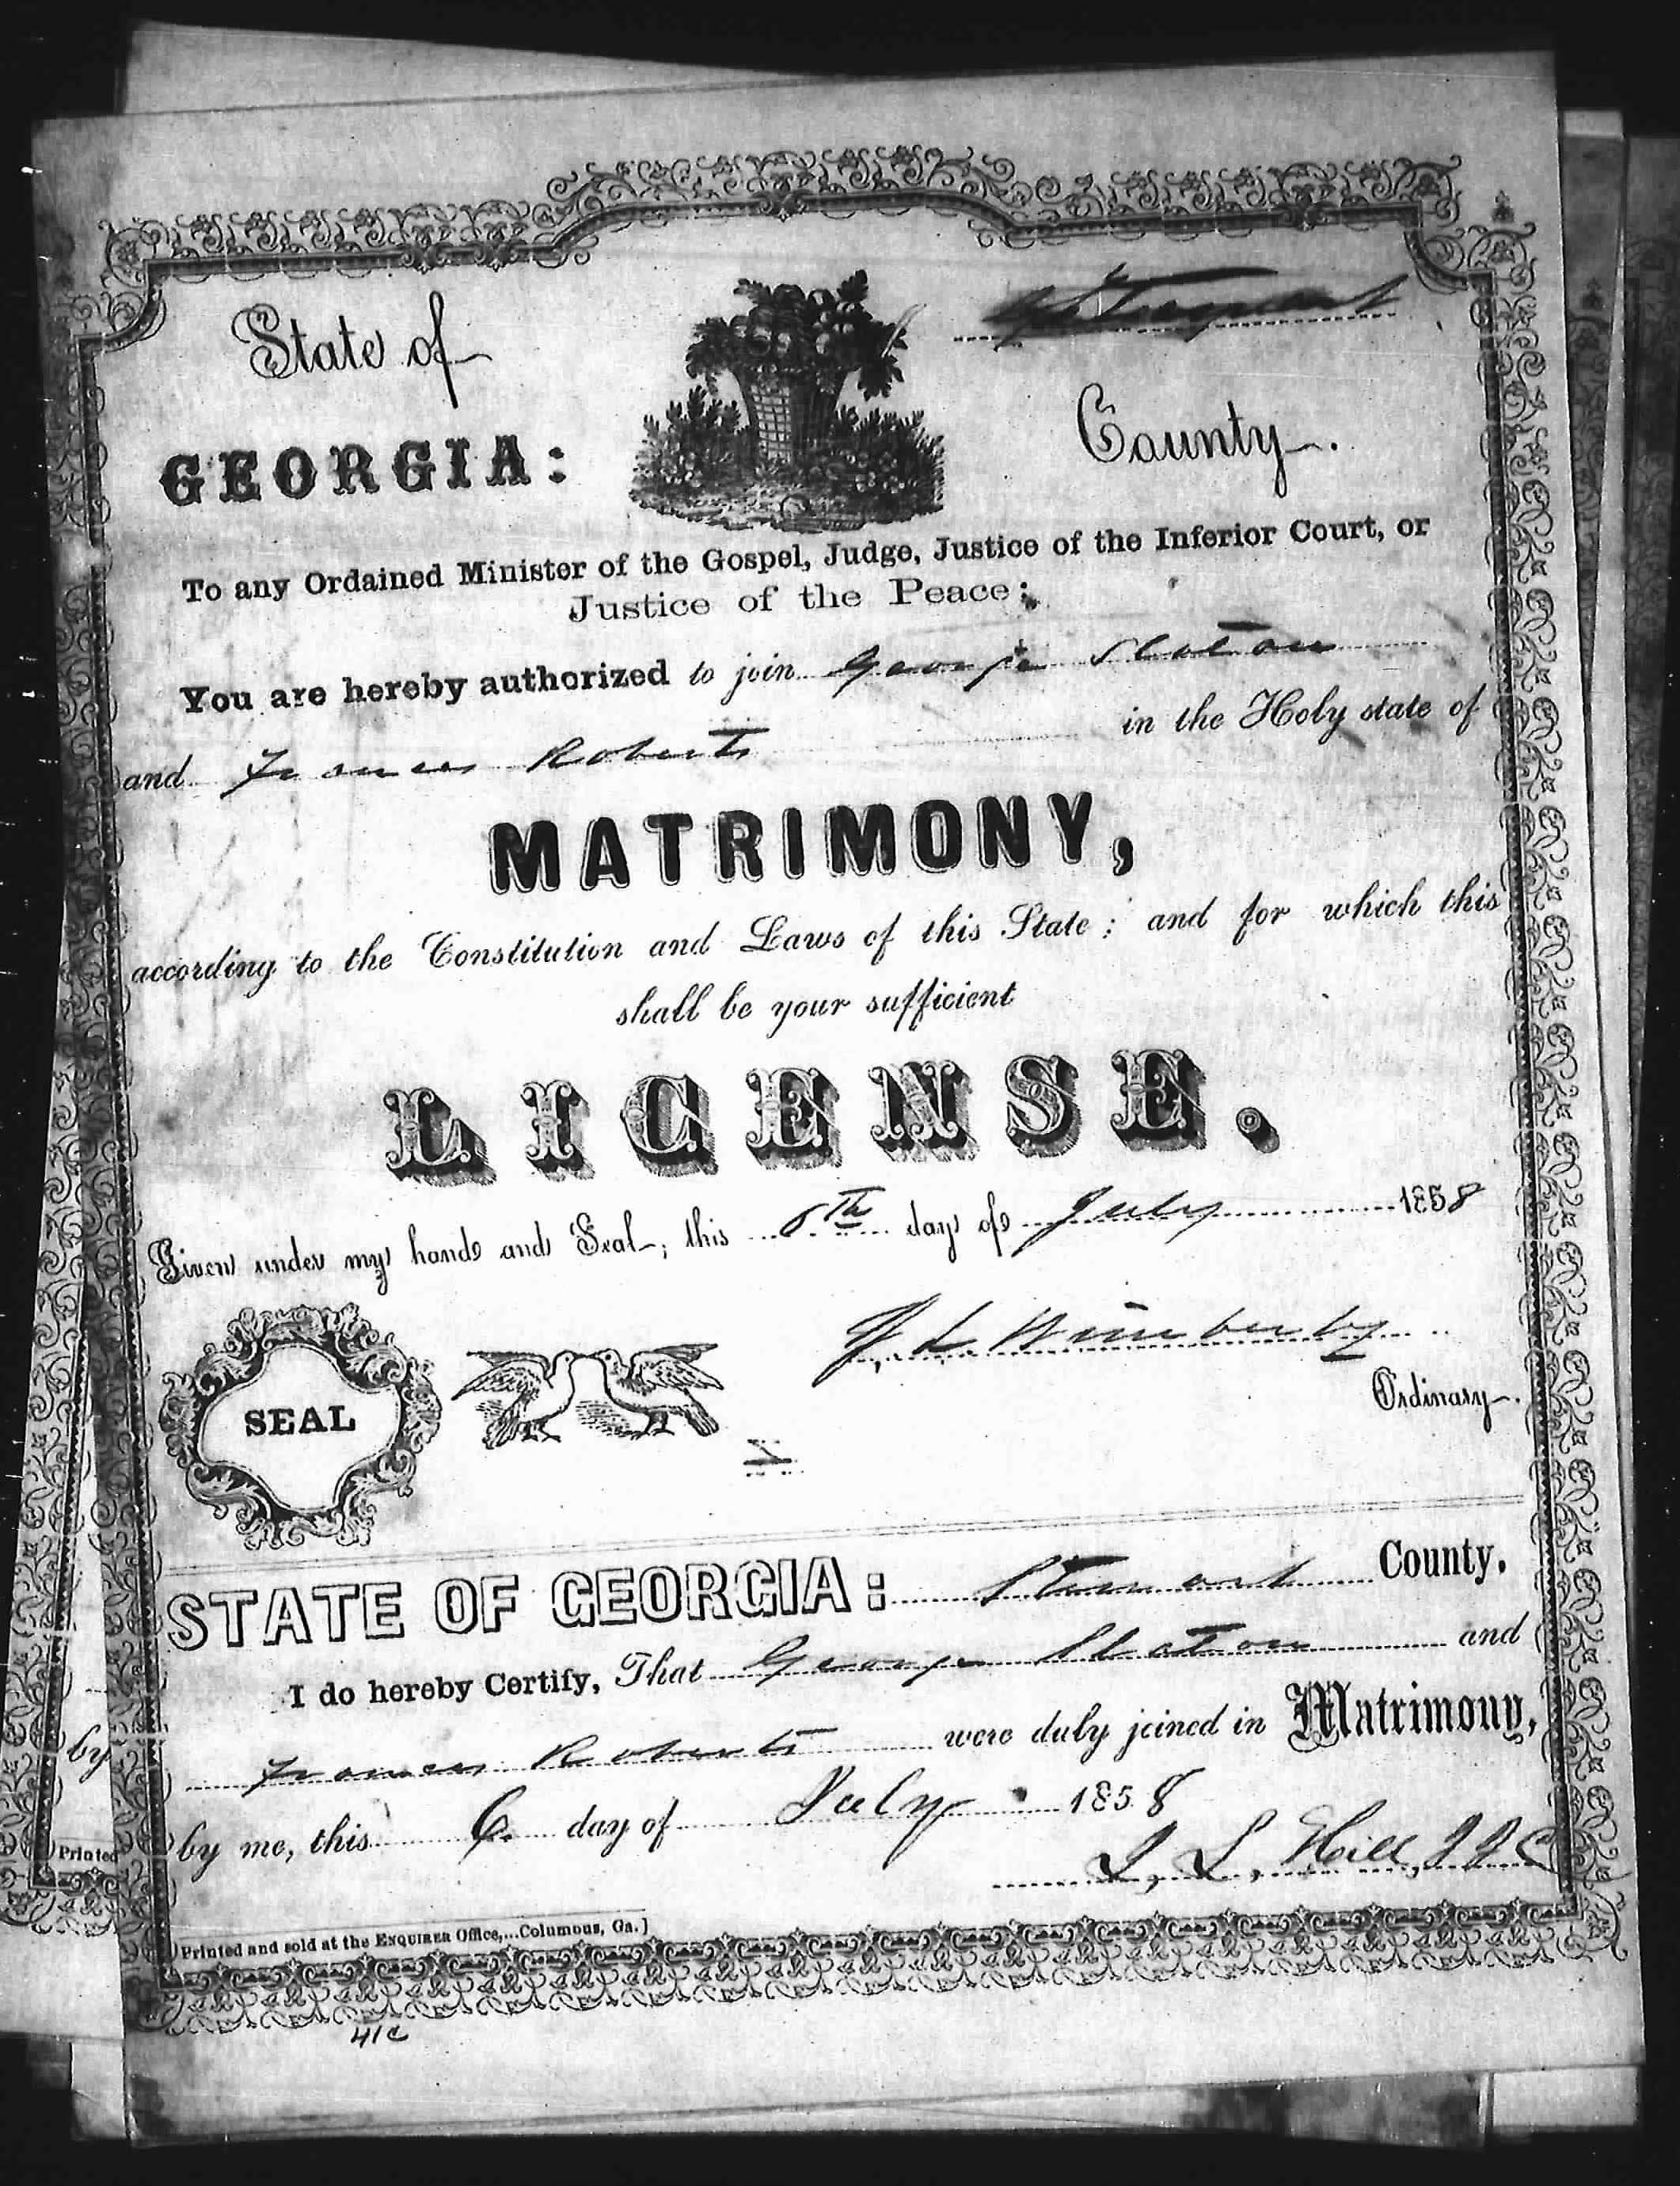 State of
GEORGIA:
County.
To any Ordained Minister of the Gospel, Judge, Justice of the Inferior Court, or
Justice of the Peace;
You are hereby authorized to join George Slaton
and Frances Roberts in the Holy state of
MATRIMONY,
according to the Constitution and Laws of this State; and for which this
shall be your sufficient
LICENSE.
Given under my hand and Seal, this 6th day of July 1858
J. L. Wimberly
Ordinary.
SEAL
STATE OF GEORGIA: Stewart County.
I do hereby Certify, That George Slaton and
Frances Roberts were duly joined in Matrimony,
by me, this 6. day of July 1858
Hill, J I C
Printed and sold at the ENQUIRER Office,...Columbus, Ga.]
41c
by
Printed